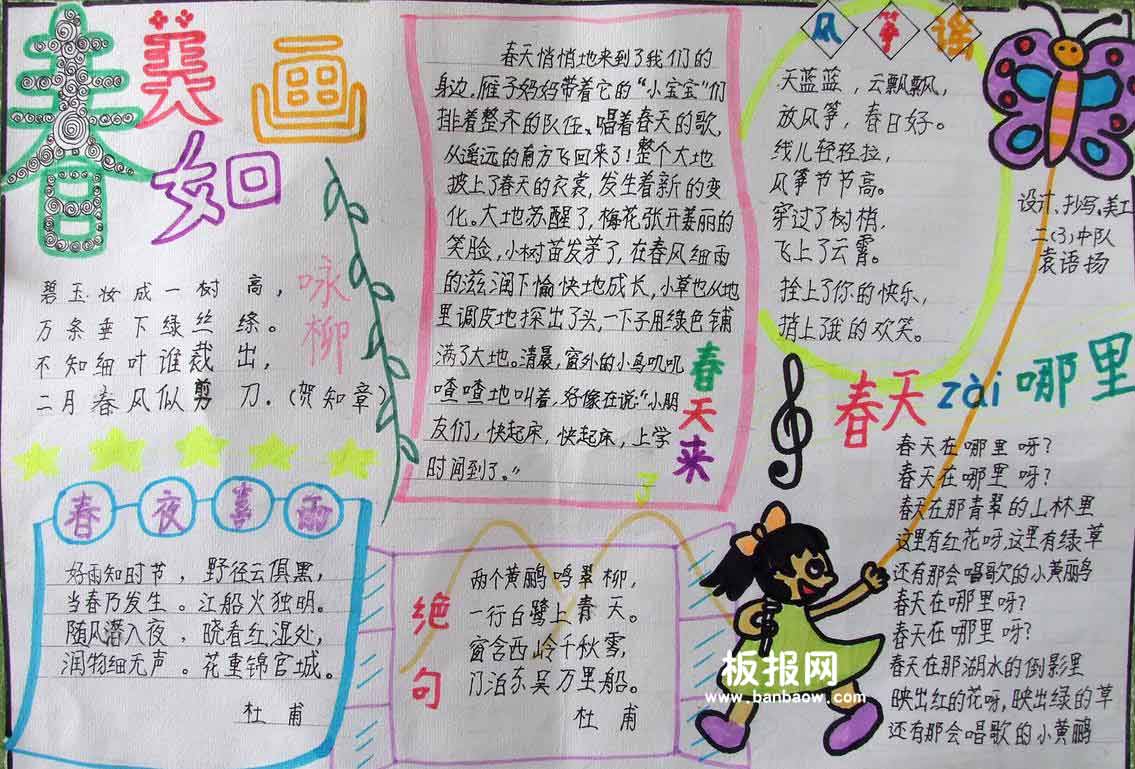 春美如画
咏柳
碧玉妆成一树高，
万条垂下绿丝绦。
不知细叶谁裁出，
二月春风似剪刀。（贺知章）
春夜喜雨
好雨知时节，野径云俱黑，
当春乃发生。江船火独明。
随风潜入夜，晓看红湿处，
润物细无声。花重锦官城。
杜甫
春天来了
春天悄悄地来到了我们的
身边。雁子妈妈带着它的“小宝宝”们
排着整齐的队伍、唱着春天的歌
从遥远的南方飞回来了！整个大地
披上了春天的衣裳，发生着新的变
化。大地苏醒了，梅花张开美丽的
笑脸，小树苗发芽了，在春风细雨
的滋润下愉快地成长，小草也从地
里调皮地探出了头，一下子用绿色铺
满了大地。清晨，窗外的小鸟叽叽
喳喳地叫着，好像在说“小朋
友们，快起床，快起床，上学
时间到了。”
绝句
两个黄鹂鸣翠柳，
一行白鹭上青天。
窗含西岭千秋雪，
门泊东吴万里船。
杜甫
风筝谣
天蓝蓝，云飘飘，
放风筝，春日好。
线儿轻轻拉，
风筝节节高。
穿过了树梢，
飞上了云霄。
拴上了你的快乐，
捎上了我的欢笑。
设计、抄写、美工
二（3）中队
袁语扬
春天zài哪里
春天在哪里呀？
春天在哪里呀？
春天在那青翠的山林里
这里有红花呀，这里有绿草
还有那会唱歌的小黄鹂
春天在哪里呀？
春天在哪里呀？
春天在那湖水的倒影里
映出红的花呀，映出绿的草
还有那会唱歌的小黄鹂
板报网
www.banbaow.com